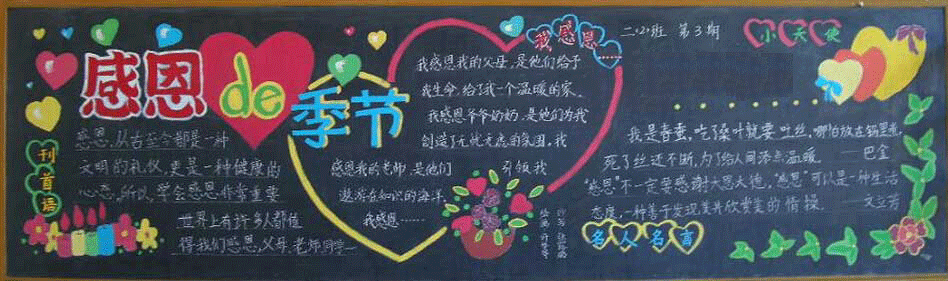 感恩de季节
刊首语
感恩,从古至今都是一种
文明的礼仪,更是一种健康的
心态,所以,学会感恩非常重要
世界上有许多人都值
得我们感恩,父母、老师、同学……
我感恩……
我感恩我的父母,是他们给予
我生命,给了我一个温暖的家。
我感恩爷爷奶奶,是他们为我
创造了无忧无虑的氛围,我
感恩我的老师,是他们引领我
遨游在知识的海洋,
我感恩……
二(2)班 第3期
小天使
我是春蚕,吃了桑叶就要吐丝,哪怕放在锅里煮,
死了丝还不断,为了给人间添点温暖。——巴金
“感恩”不一定要感谢大恩大德,“感恩”可以是一种生活
态度,一种善于发现美并欣赏美的情操。
名人名言